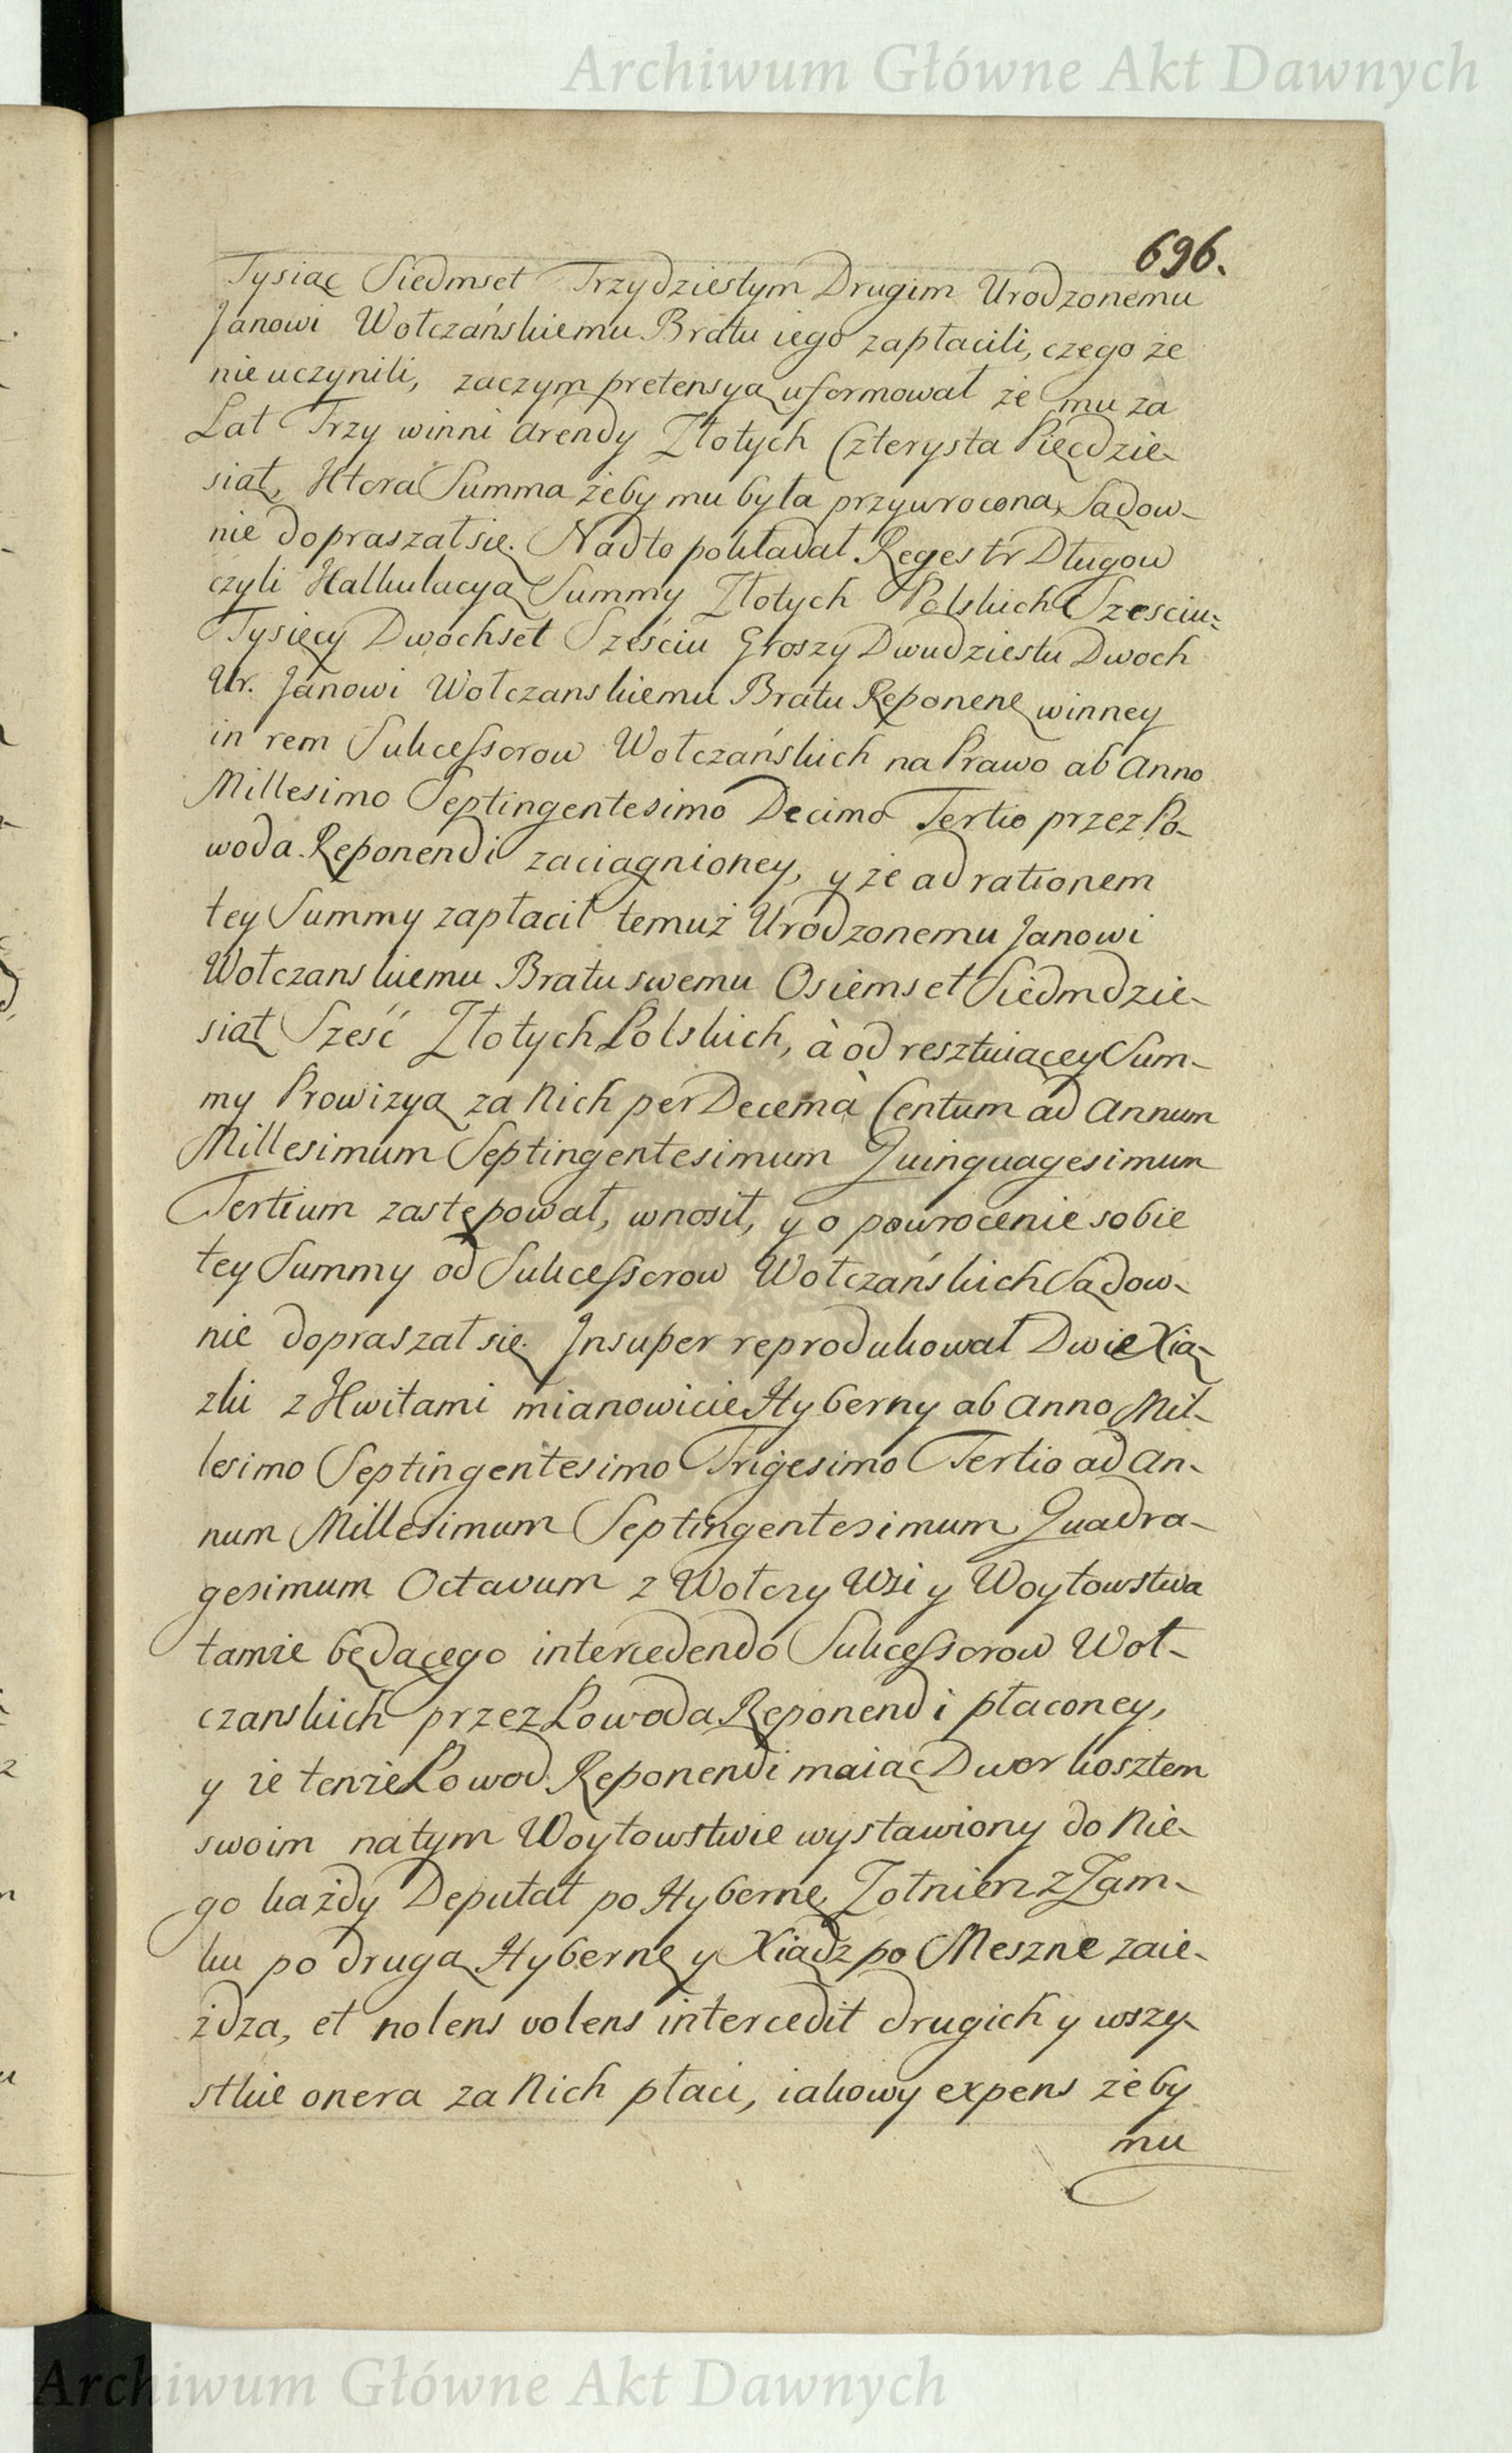 Archiwum Główne Akt Dawnych
696.
Tysiąc Siedmset Trzydziestym Drugim Urodzonemu
Janowi Wołczańskiemu Bratu iego zapłacili, czego że
nie uczynili, zaczym pretensyą uformował że mu za
Lat Trzy winni arendy Złotych Czterysta Pięcdzie-
siąt, Ktora Summa żeby mu była przywrocona, Sądow-
nie dopraszał się. Nadto pokładał Regestr Długow
czyli Kalkulacyą Summy Złotych Polskich Szesciu-
Tysięcy Dwochset Sześciu Groszy Dwudziestu Dwoch
Ur. Janowi Wołczanskiemu Bratu Reponenę winney
in rem Sukcessorow Wołczańskich na Prawo ab Anno
Millesimo Septingentesimo Decimo Tertio przez Po-
woda Reponendi zaciągnioney, y że ad rationem
tey Summy zapłacił temuż Urodzonemu Janowi
Wołczanskiemu Bratu swemu Osiemset Siedmdzie-
siąt Sześć Złotych Polskich, à od resztuiącey Sum-
my Prowizyą za Nich per Decem à Centum ad Annum
Millesimum Septingentesimum Quinquagesimum
Tertium zastępował, wnosił, y o powrocenie sobie
tey Summy od Sukcessorow Wołczańskich Sądow-
nie dopraszał się. Insuper reprodukował Dwie Xią-
zki z Kwitami mianowicie Hyberny ab Anno Mil-
lesimo Septingentesimo Trigesimo Tertio ad An-
num Millesimum Septingentesimum Quadra-
gesimum Octavum z Wołczy Wsi y Woytowstwa
tamże będącego intercedendo Sukcessorow Woł-
czanskich przez Powoda Reponendi płaconey,
y że tenże Powod Reponendi maiąc Dwor kosztem
swoim na tym Woytowstwie wystawiony do Nie-
go każdy Deputat po Hybernę, Żołnierz z Zam-
ku po drugą Hybernę y Xiądz po Meszne zaie-
żdza, et nolens volens intercedit drugich y wszy-
stkie onera za Nich płaci, iakowy expens żeby
mu
Archiwum Główne Akt Dawnych